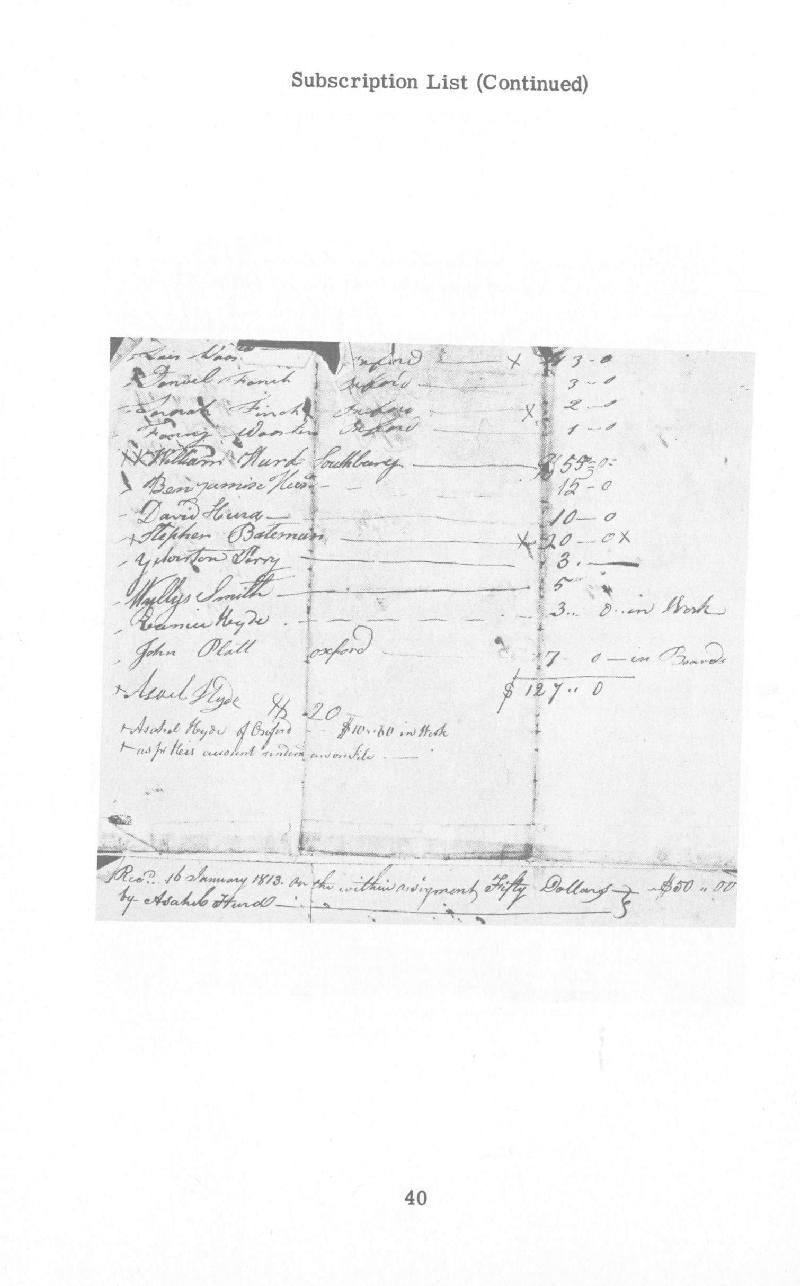 Subscription List (Continued)
oxford X 3-0
Daniel Finch oxford 3-0
Finch oxford X 2-0
Fanny Wooster oxford 1-0
XX William Hurd Southbury $55=0=
Benjamin 15-0
David Hurd 10-0
+ Stephen Bateman X 20-0X
Yelverton Perry 3.
Wyllys Smith 5
Hyde 3.. 0 in Work
John Platt oxford 7 0 in Boards
$127.. 0
+ Asael Hyde $ 20
+ Asahel Hyde of Oxford $10..60 in Work
+ as pr account on file
Recd. 16 January 1813. on the within assignment Fifty Dollars $50..00
by Asahel Hurd
40